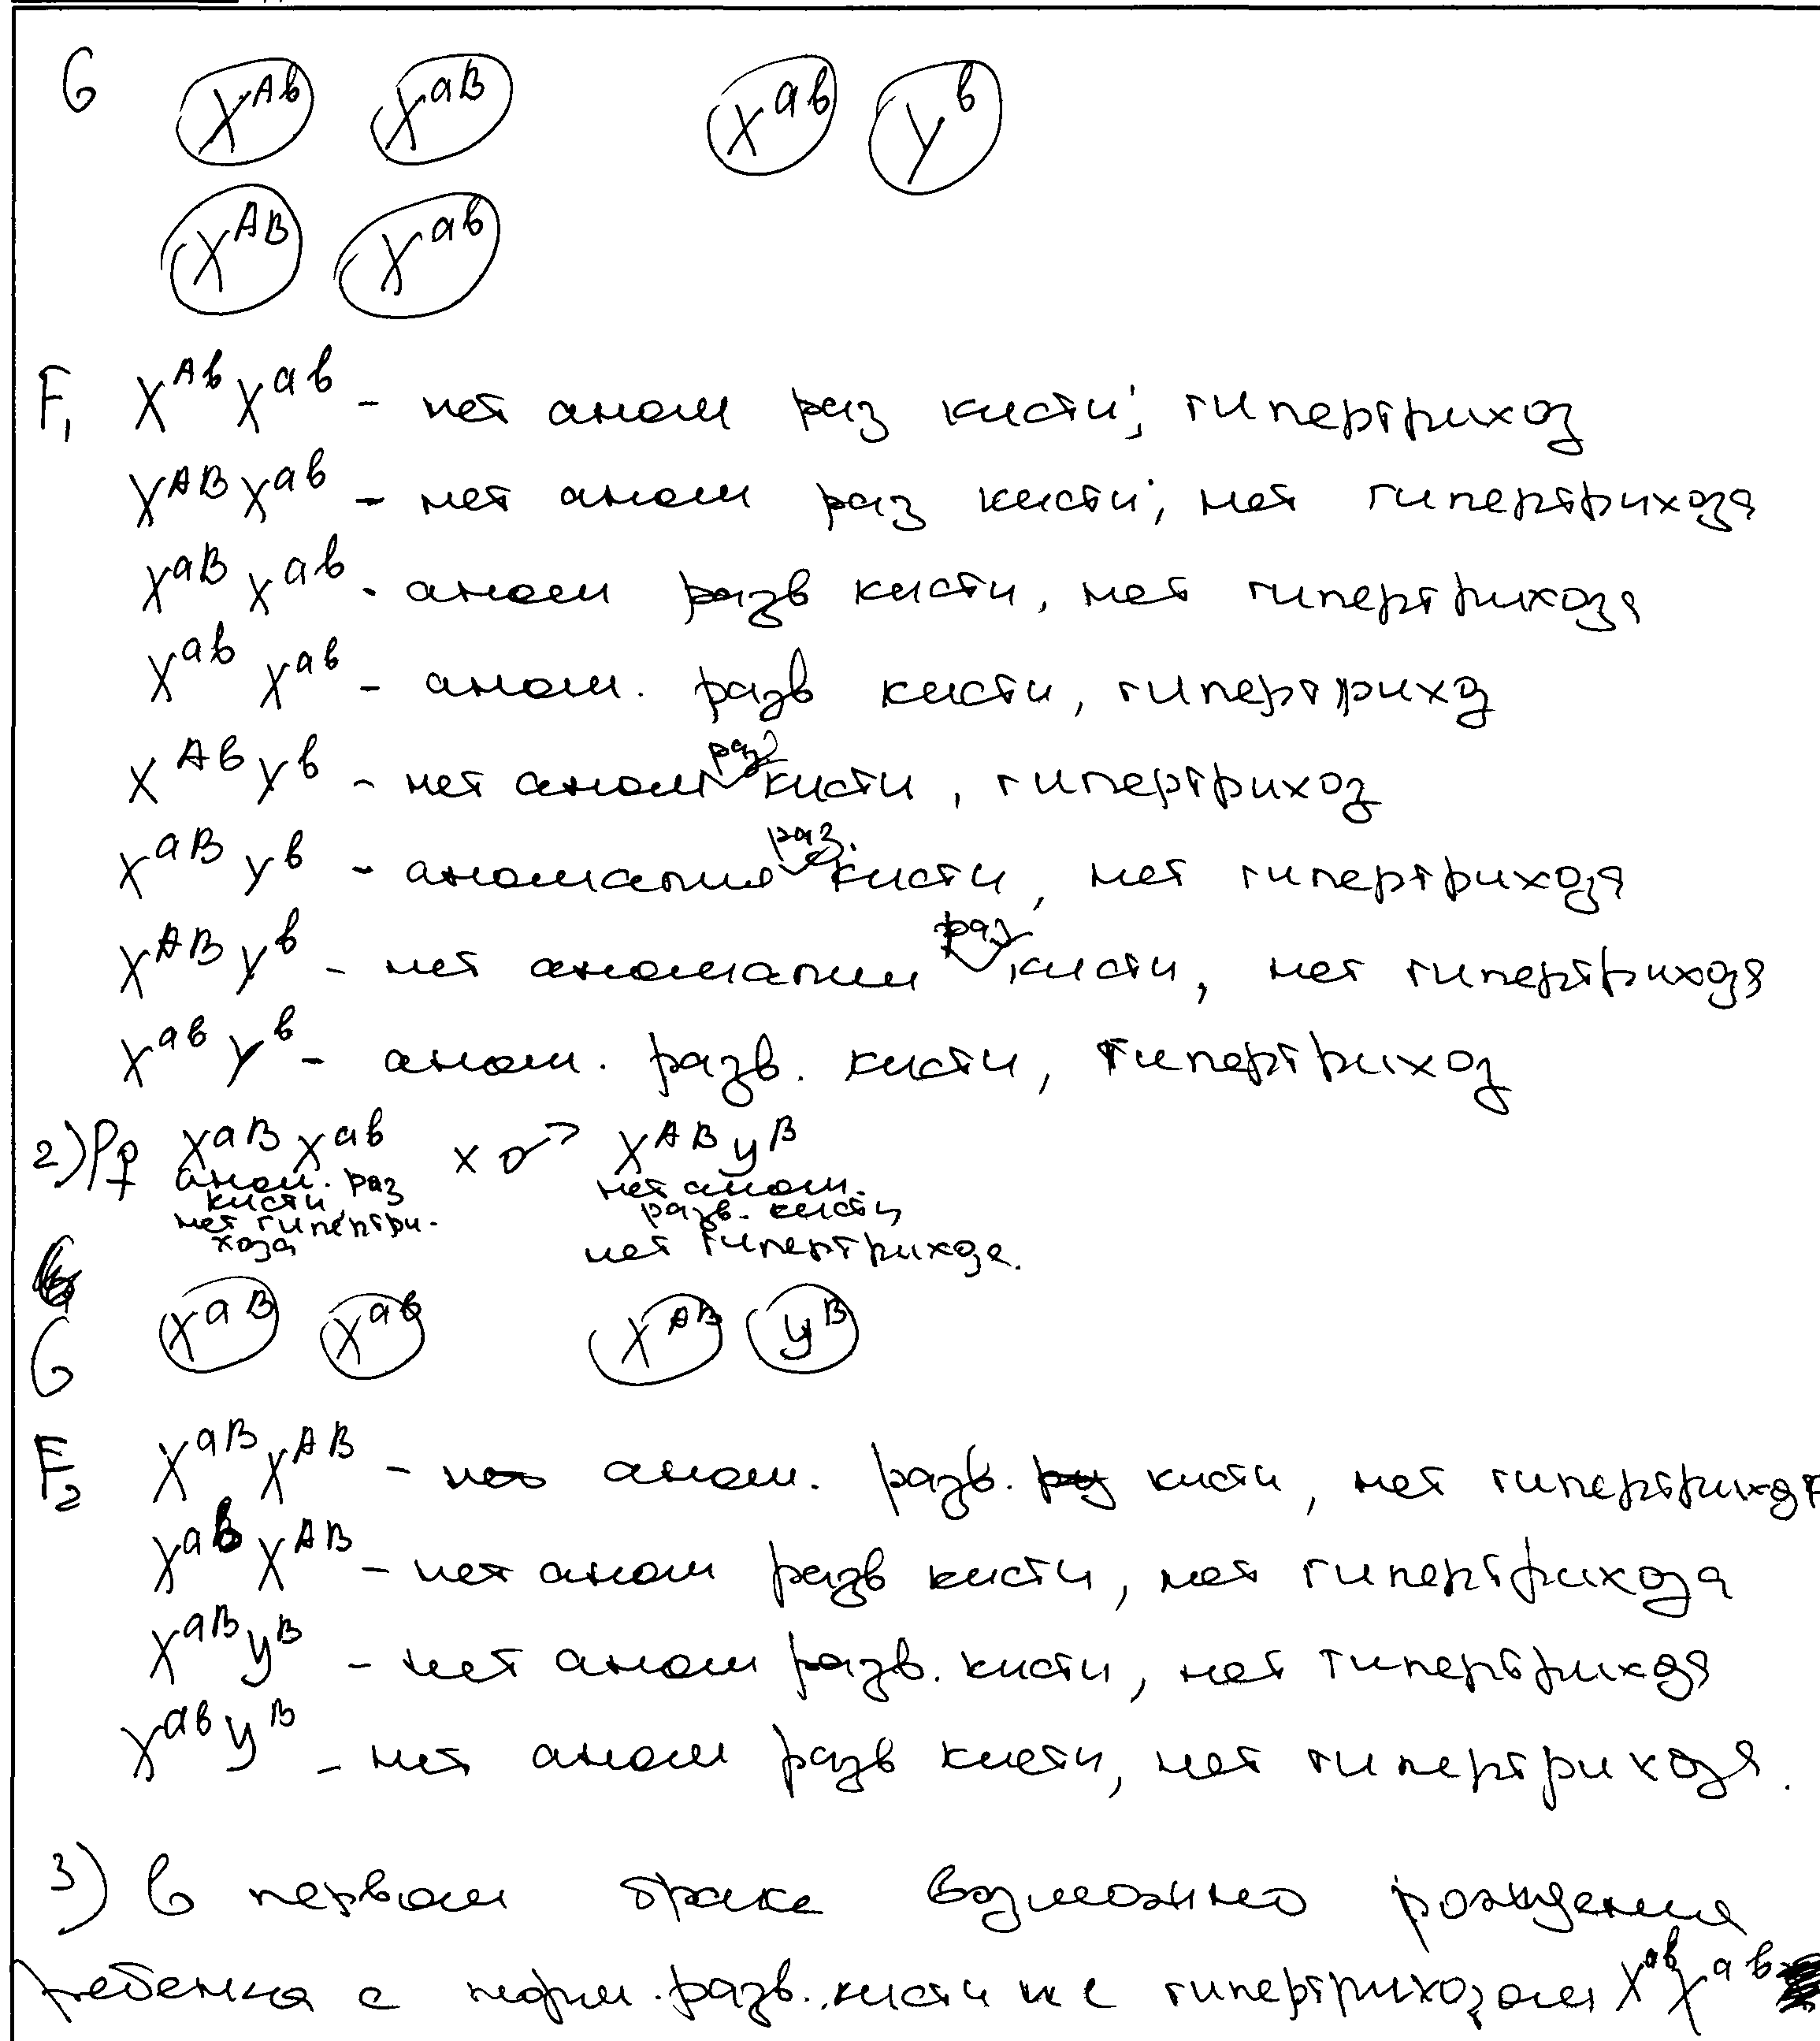 G X^Aб X^aB X^aб Y^б
X^AB X^aб
F₁ X^Aб X^aб - нет аном раз кисти; гипертрихоз
X^AB X^aб - нет аном раз кисти; нет гипертрихоза
X^aB X^aб - аном разв кисти, нет гипертрихоза
X^aб X^aб - аном. разв кисти, гипертрихз
X^Aб Y^б - нет аном раз кисти, гипертрихоз
X^aB Y^б - аномалия раз. кисти, нет гипертрихоза
X^AB Y^б - нет аномалии раз кисти, нет гипертрихоза
X^aб Y^б - аном. разв. кисти, гипертрихоз
2) P ♀ X^aB X^aб x ♂ X^AB Y^B
аном. раз кисти, нет гипертри-хоза
нет аном. разв. кисти нет гипертрихоза.
G X^aB X^aб X^AB Y^B
F₂ X^aB X^AB - аном. разв. кисти, нет гипертрихоза
X^aб X^AB - нет аном разв кисти, нет гипертрихоза
X^aB Y^B - нет аном разв. кисти, нет гипертрихоза
X^aб Y^B - нет аном разв кисти, нет гипертрихоза.
3) В первом браке возможно рождения
ребенка с норм. разв. кисти и с гипертрихозом X^aб X^aб